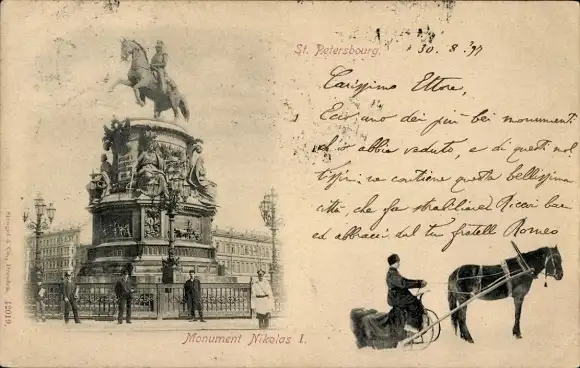 St. Petersbourg. 30. 8. 97
Carissimo Ettore,
Ecco uno dei più bei monumenti
ch'io abbia veduto, e di questi mol
tissimi ne contiene questa bellissima
città, che fa strabiliare. Ricevi baci
ed abbracci dal tuo fratello Romeo
Stengel & Co., Dresden. 12019.
Monument Nikolas I.